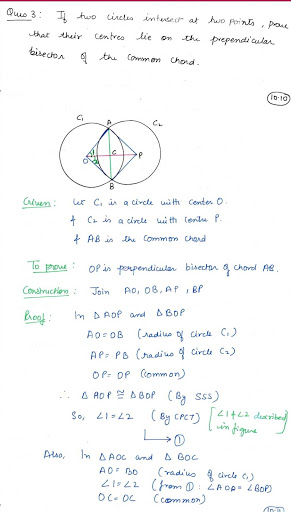 Ques 3: If two circles intersect at two points, prove
that their centres lie on the prependicular
bisector of the common chord.
10.10
C1
A
C2
O
1
2
C
P
B
Given: let C1 is a circle with center O.
& C2 is a circle with centre P.
& AB is the common chord
To prove: OP is perpendicular bisector of chord AB.
Construction: Join AO, OB, AP, BP
Proof: In Δ AOP and Δ BOP
AO = OB (radius of circle C1)
AP = PB (radius of circle C2)
OP = OP (common)
∴ Δ AOP ≅ Δ BOP (By SSS)
So, ∠1 = ∠2 (By CPCT) [∠1 & ∠2 described
in figure]
→ ①
Also, In Δ AOC and Δ BOC
AO = BO (radius of circle C1)
∠1 = ∠2 (from ①: ∠AOP = ∠BOP)
OC = OC (common)